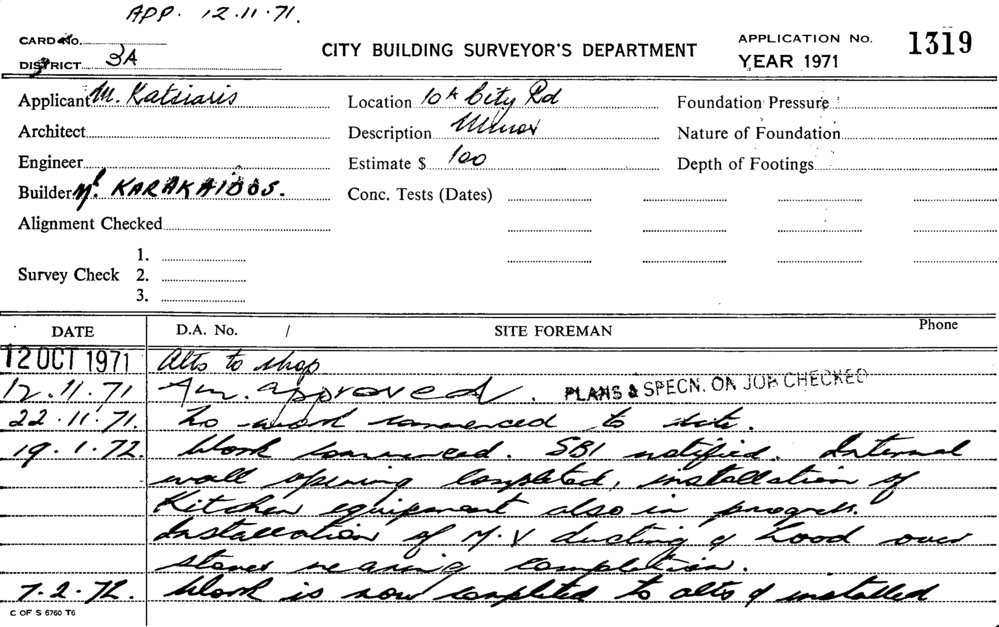 APP. 12.11.71.
CARD No.
DISTRICT 3A
CITY BUILDING SURVEYOR'S DEPARTMENT
APPLICATION No. 1319
YEAR 1971
Applicant M. Katsiaris Location 10A City Rd Foundation Pressure
Architect Description Minor Nature of Foundation
Engineer Estimate $ 100 Depth of Footings
Builder M. KARAKAIDOS. Conc. Tests (Dates)
Alignment Checked
Survey Check 1.
2.
3.
DATE D.A. No. / SITE FOREMAN Phone
12 OCT 1971 Alts to shop
12.11.71 Am. approved. PLANS & SPECN. ON JOB CHECKED
22.11.71. No work commenced to date.
19.1.72. Work commenced. SBI notified. Internal
wall opening completed, installation of
Kitchen equipment also in progress.
Installation of M.V ducting & hood over
stoves nearing completion.
7.2.72. Work is now completed to alts & installed
C OF S 6760 T6